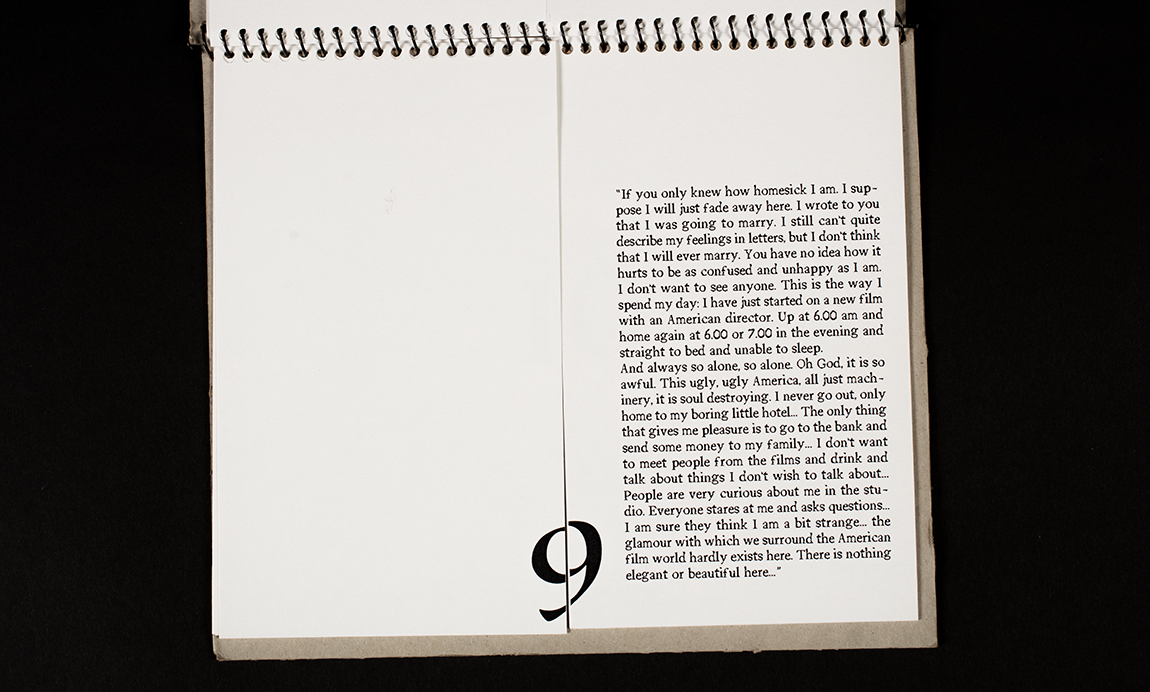 "If you only knew how homesick I am. I sup-
pose I will just fade away here. I wrote to you
that I was going to marry. I still can't quite
describe my feelings in letters, but I don't think
that I will ever marry. You have no idea how it
hurts to be as confused and unhappy as I am.
I don't want to see anyone. This is the way I
spend my day: I have just started on a new film
with an American director. Up at 6.00 am and
home again at 6.00 or 7.00 in the evening and
straight to bed and unable to sleep.
And always so alone, so alone. Oh God, it is so
awful. This ugly, ugly America, all just mach-
inery, it is soul destroying. I never go out, only
home to my boring little hotel... The only thing
that gives me pleasure is to go to the bank and
send some money to my family... I don't want
to meet people from the films and drink and
talk about things I don't wish to talk about...
People are very curious about me in the stu-
dio. Everyone stares at me and asks questions...
I am sure they think I am a bit strange... the
glamour with which we surround the American
film world hardly exists here. There is nothing
elegant or beautiful here..."
9